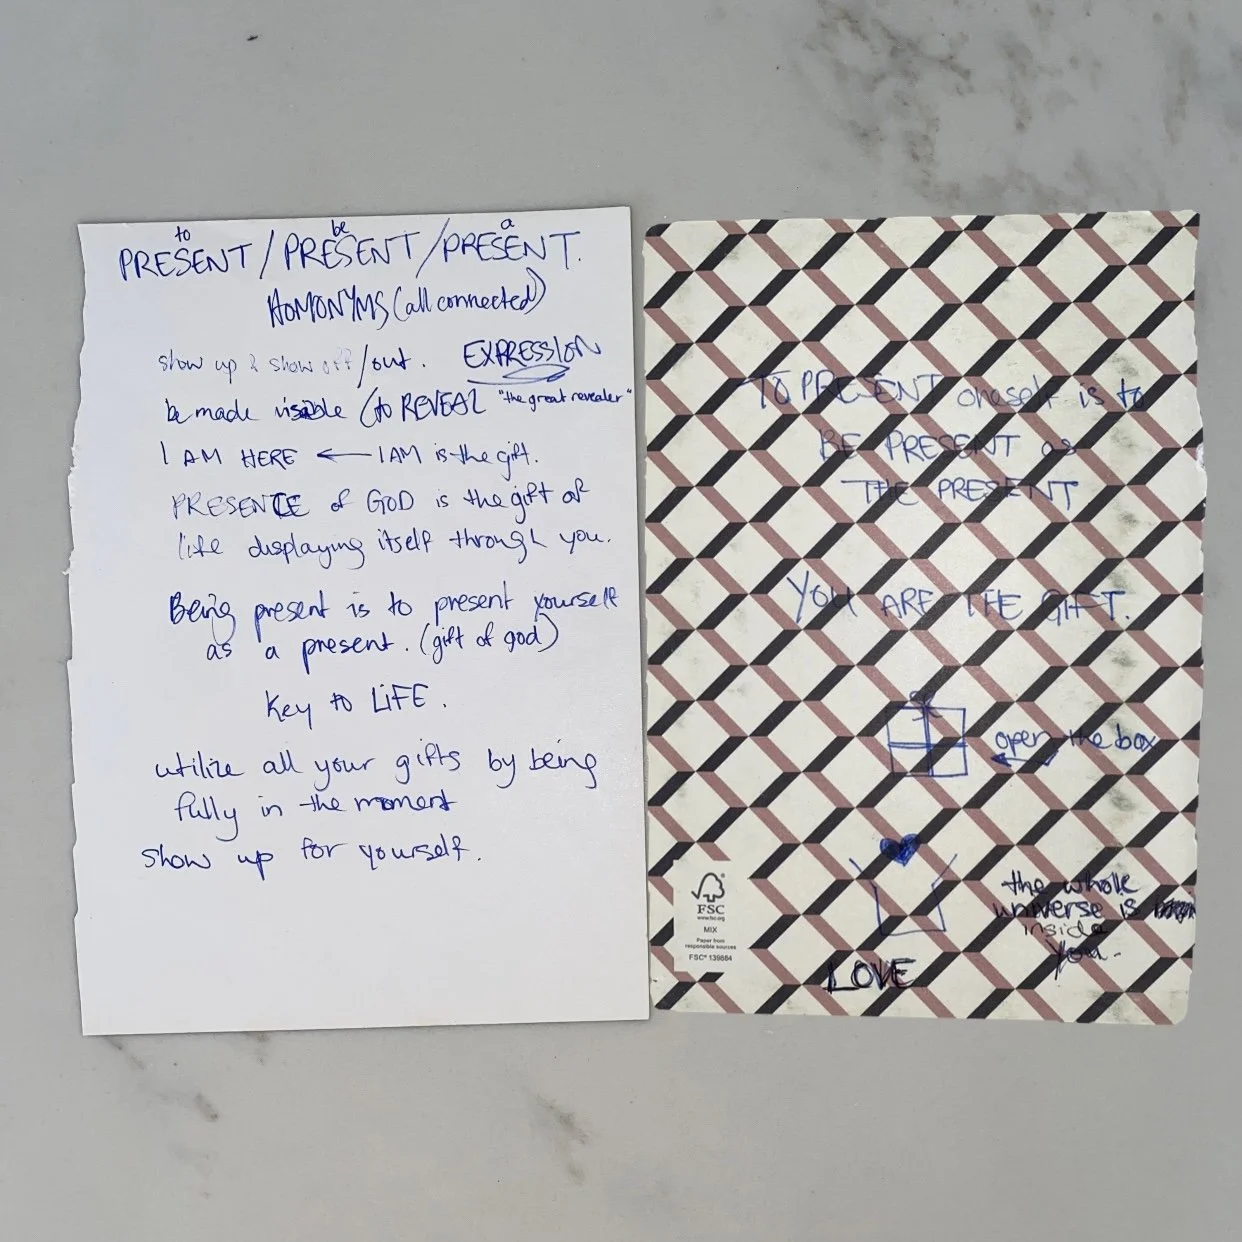 to be a
PRESENT / PRESENT / PRESENT.
HOMONYMS (all connected)
show up & show off/out. EXPRESSION
be made visible (to REVEAL "the great revealer"
I AM HERE ← I AM is the gift.
PRESENCE of GOD is the gift of
life displaying itself through you.
Being present is to present yourself
as a present. (gift of god)
Key to LiFE.
utilize all your gifts by being
fully in the moment
show up for yourself.
TO PRESENT oneself is to
BE PRESENT as
THE PRESENT
YOU ARE THE GIFT.
open the box
the whole
universe is
inside
you.
LOVE
FSC
www.fsc.org
MIX
Paper from
responsible sources
FSC® 139864